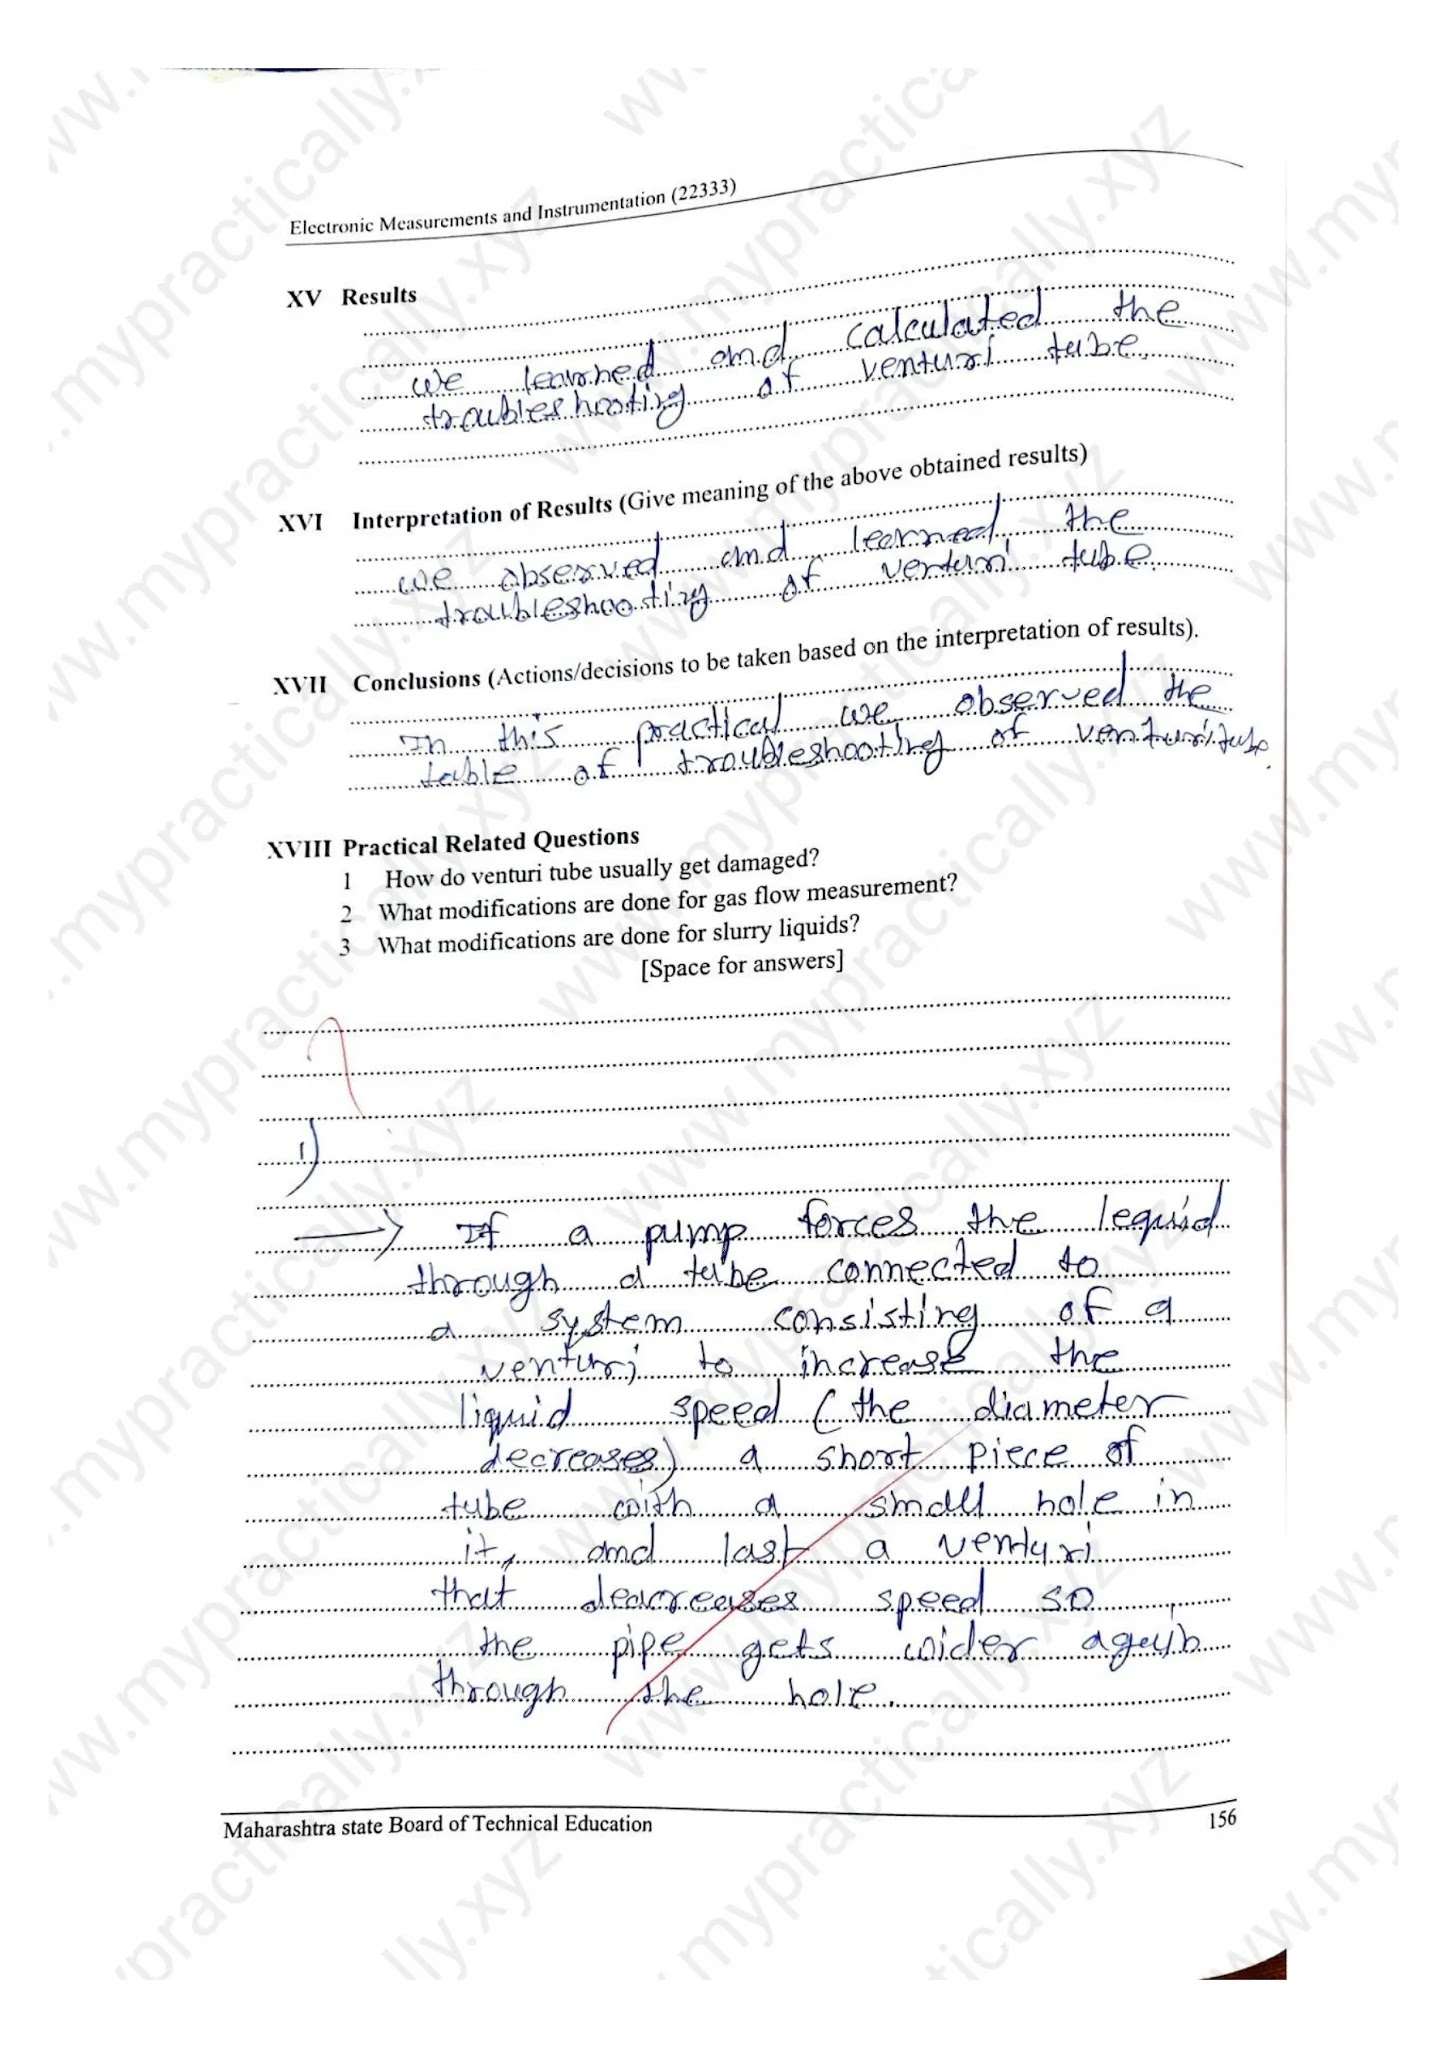 Electronic Measurements and Instrumentation (22333)
XV Results
we learned and calculated the
troubleshooting of venturi tube.
XVI Interpretation of Results (Give meaning of the above obtained results)
we observed and learned, the
troubleshooting of venturi tube.
XVII Conclusions (Actions/decisions to be taken based on the interpretation of results).
In this practical we observed the
table of troubleshooting of venturitube.
XVIII Practical Related Questions
1 How do venturi tube usually get damaged?
2 What modifications are done for gas flow measurement?
3 What modifications are done for slurry liquids?
[Space for answers]
1)
→ If a pump forces the lequid
through a tube connected to
a system consisting of a
venturi to increase the
liquid speed (the diameter
decreases) a short piece of
tube with a small hole in
it, and last a venturi
that deacreases speed so
the pipe gets wider
through the hole.
Maharashtra state Board of Technical Education 156
www.mypractically.xyz